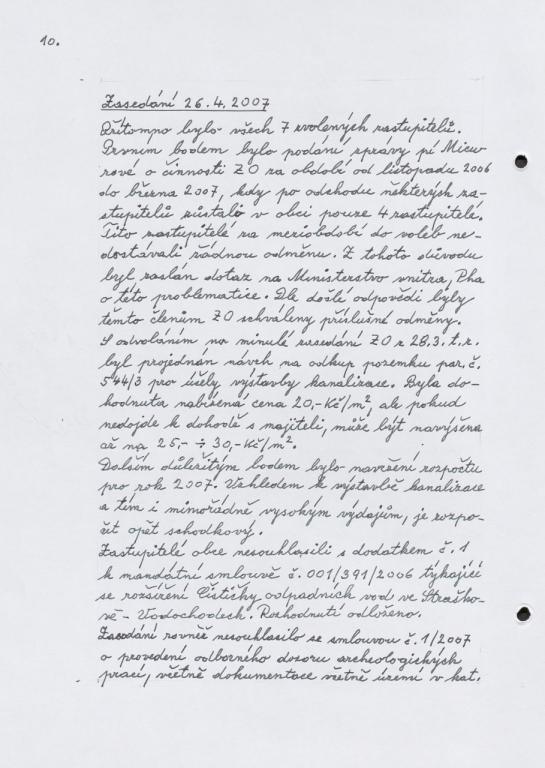 10.
Zasedání 26.4.2007
Přítomno bylo všech 7 zvolených zastupitelů.
Prvním bodem bylo podání zprávy pí Micu-
rové o činnosti ZO za období od listopadu 2006
do března 2007, kdy po odchodu některých za-
stupitelů zůstalo v obci pouze 4 zastupitelé.
Tito zastupitelé za meziobdobí do voleb ne-
dostávali řádnou odměnu. Z tohoto důvodu
byl zaslán dotaz na Ministerstvo vnitra, Pha
o této problematice. Dle došlé odpovědi byly
těmto členům ZO schváleny příslušné odměny.
S odvoláním na minulé zasedání ZO z 28.3.t.r.
byl projednán návrh na odkup pozemku par.č.
544/3 pro účely výstavby kanalizace. Byla do-
hodnuta nabízená cena 20,-Kč/m², ale pokud
nedojde k dohodě s majiteli, může být navýšena
až na 25,- ÷ 30,-Kč/m².
Dalším důležitým bodem bylo navržení rozpočtu
pro rok 2007. Vzhledem k výstavbě kanalizace
a tím i mimořádně vysokým výdajům, je rozpo-
čit opět schodkový.
Zastupitelé obce nesouhlasili s dodatkem č.1
k mandátní smlouvě č.001/391/2006 týkající
se rozšíření Čističky odpadních vod ve Straško-
vě - Vodochodech. Rozhodnutí odloženo.
Zasedání rovněž nesouhlasilo se smlouvou č.1/2007
o provedení odborného dozoru archeologických
prací, včetně dokumentace včetně území v kat.